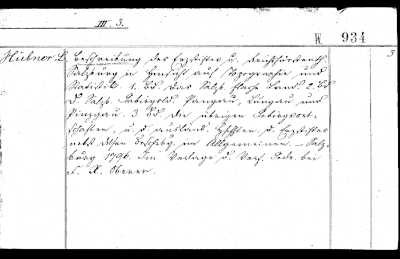 III 3.
K. 934
Hübner L. Beschreibung des Erzstiftes u. Reichsfürstenth. 3
Salzburg in Hinsicht auf Topographie und
Statistik 1. Bd. Das Salzb. flache Land. 2. Bd
D. Salzb. Gebirgsld. Pongau, Lungau und
Pinzgau. 3. Bd. die übrigen Gebirgsort-
schaften, u. d. ausländ. d. Erzstiftes
nebst dessen im Allgemeinen. – Salz-
burg 1796. Im Verlage d. Verf. Gedr. bei
F. X. Oberer.